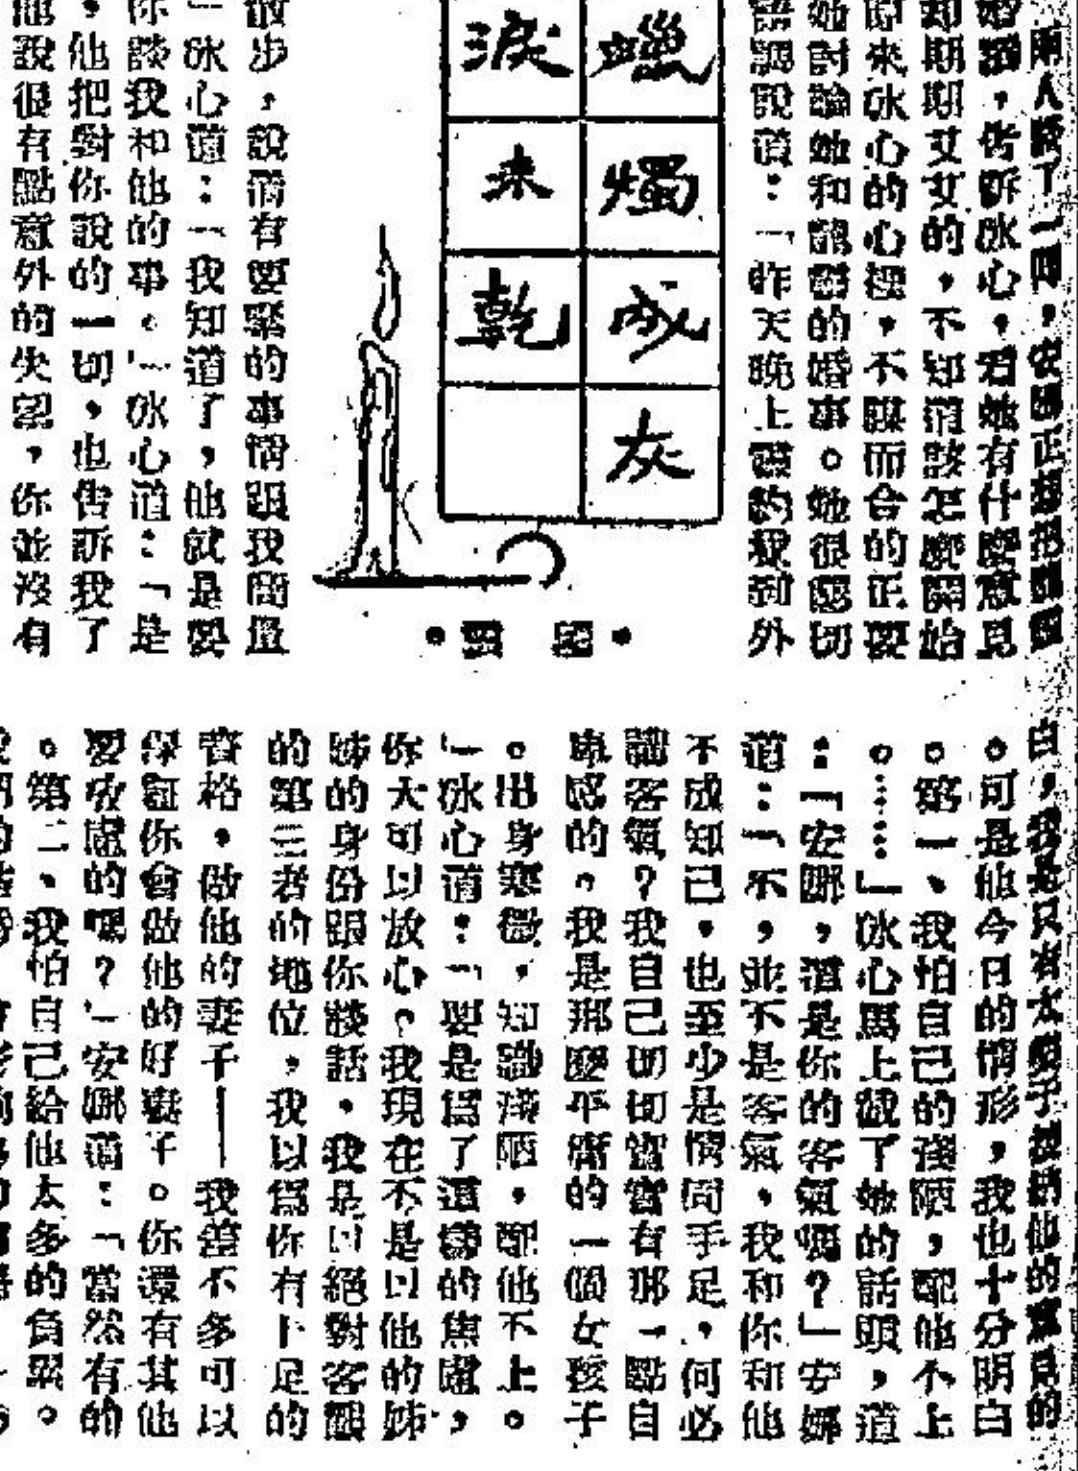 兩人談了一回，安娜正想把
婚問，告訴冰心，看她有什麼意見
却期期艾艾的，不知道該怎麼開始
原來冰心的心裡，不謀而合的正要
她討論她和龍的婚事。她很懇切
語調說道：「昨天晚上靈約我到外
蠟燭成灰
淚未乾
散步，說道有要緊的事情跟我商量
」冰心道：「我知道了，他就是要
你談我和他的事。」冰心道：「是
，他把對你說的一切，也告訴我了
他說很有點意外的失望，你並沒有
白，我是只有太太妹子
。可是他今日的情形，我也十分明白
。第一、我怕自己的淺陋，配他不上
。……」冰心馬上截了她的話頭，道
：「安娜，這是你的客氣嗎？」安娜
道：「不，並不是客氣，我和你和他
不成知己，也至少是情同手足，何必
講客氣？我自己切切實實有那一點自
卑感的。我是那麼平庸的一個女孩子
。出身寒微，知識淺陋，配他不上。
」冰心道：「要是爲了這樣的焦慮，
你大可以放心。我現在不是以他的姊
姊的身份跟你談話，我是以絕對客觀
的第三者的地位，我以爲你有十足的
資格，做他的妻子——我差不多可以
保証你會做他的好妻子。你還有其他
要攷慮的嗎？」安娜道：「當然有的
。第二、我怕自己給他太多的負累。